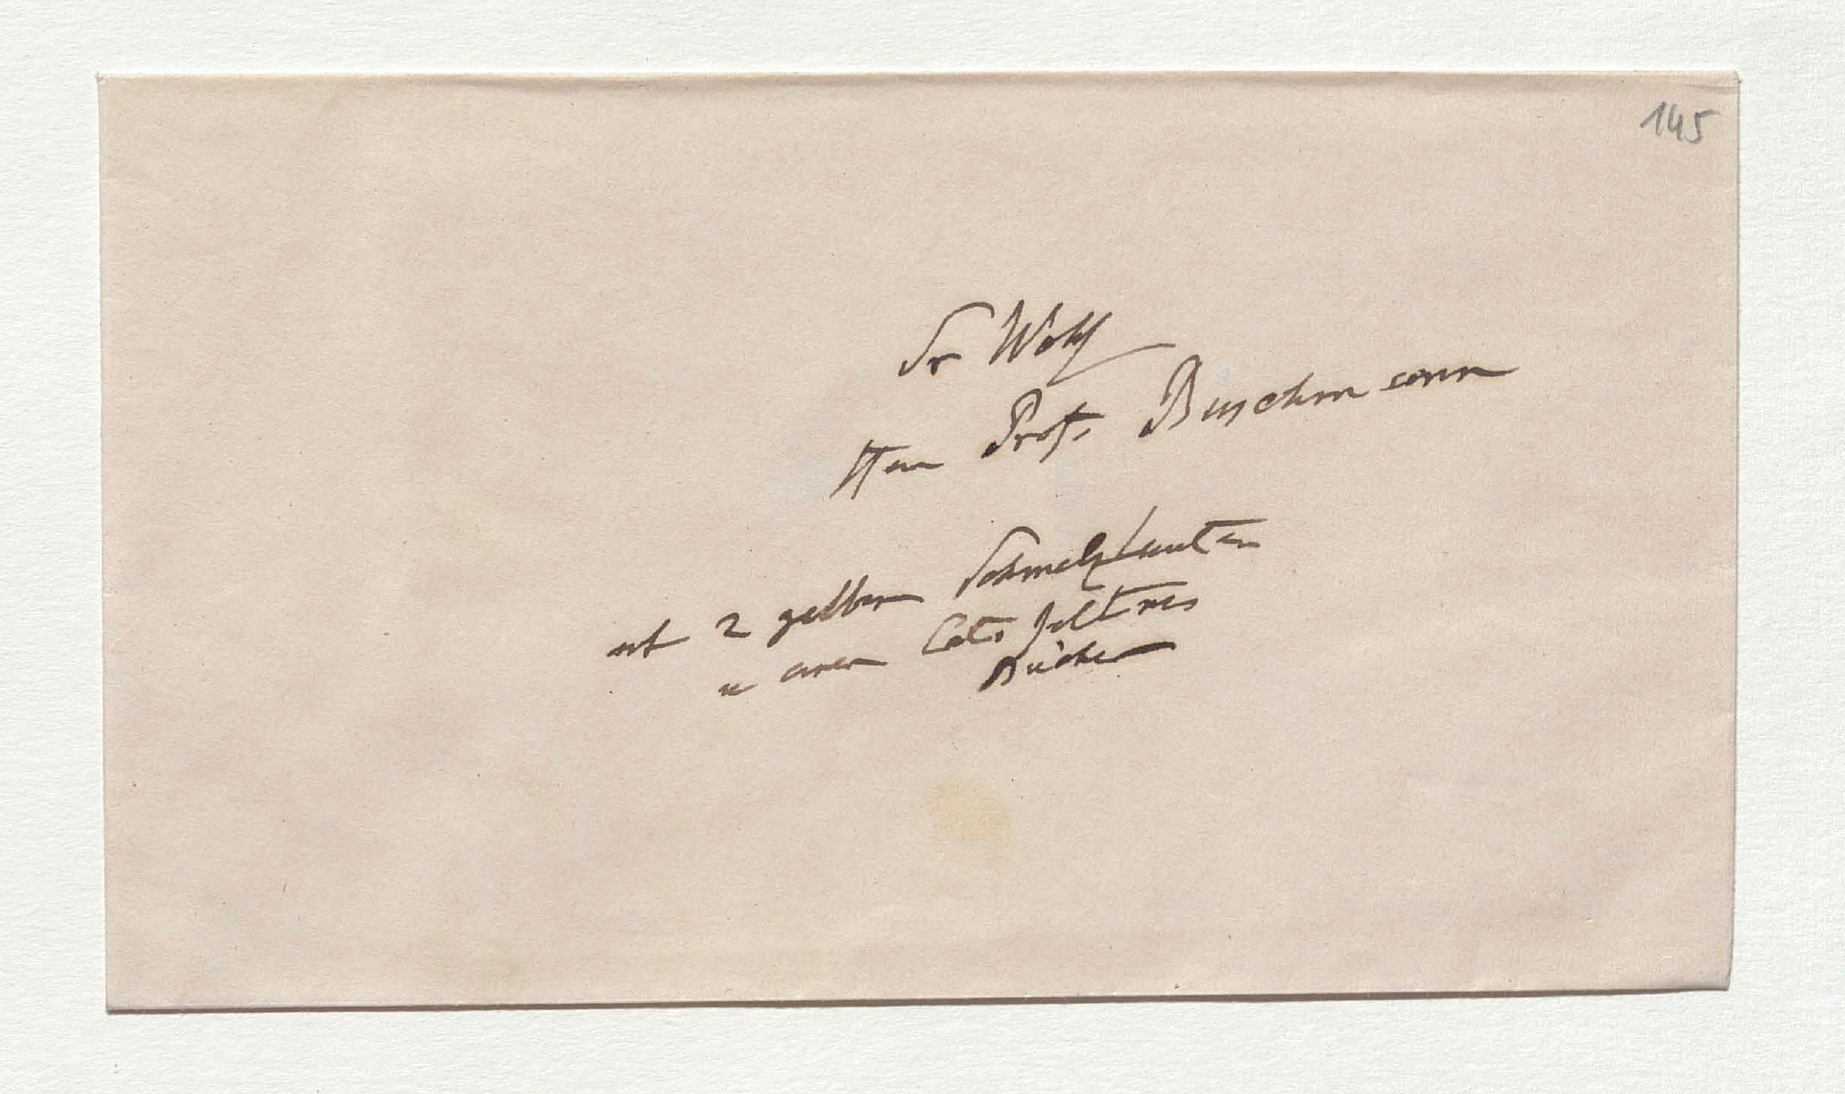 145
Sr Wohl
Herrn Prof. Buschmann
mit 2 gelben
u einem Cat. seltner
Bücher